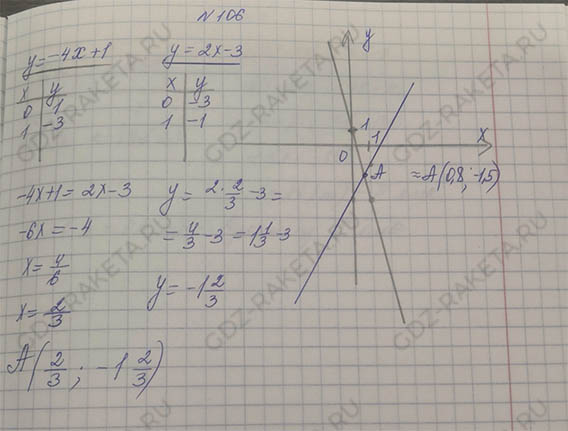 N 106
y = -4x+1
x | y
0 | 1
1 | -3
y = 2x-3
x | y
0 | -3
1 | -1
-4x+1 = 2x-3
-6x = -4
x = 4/6
x = 2/3
A(2/3 ; -1 2/3)
y = 2·2/3 -3 =
= 4/3 -3 = 1 1/3 -3
y = -1 2/3
y
1
1
x
0
A
≈A(0,8; -1,5)
GDZ-RAKETA.RU